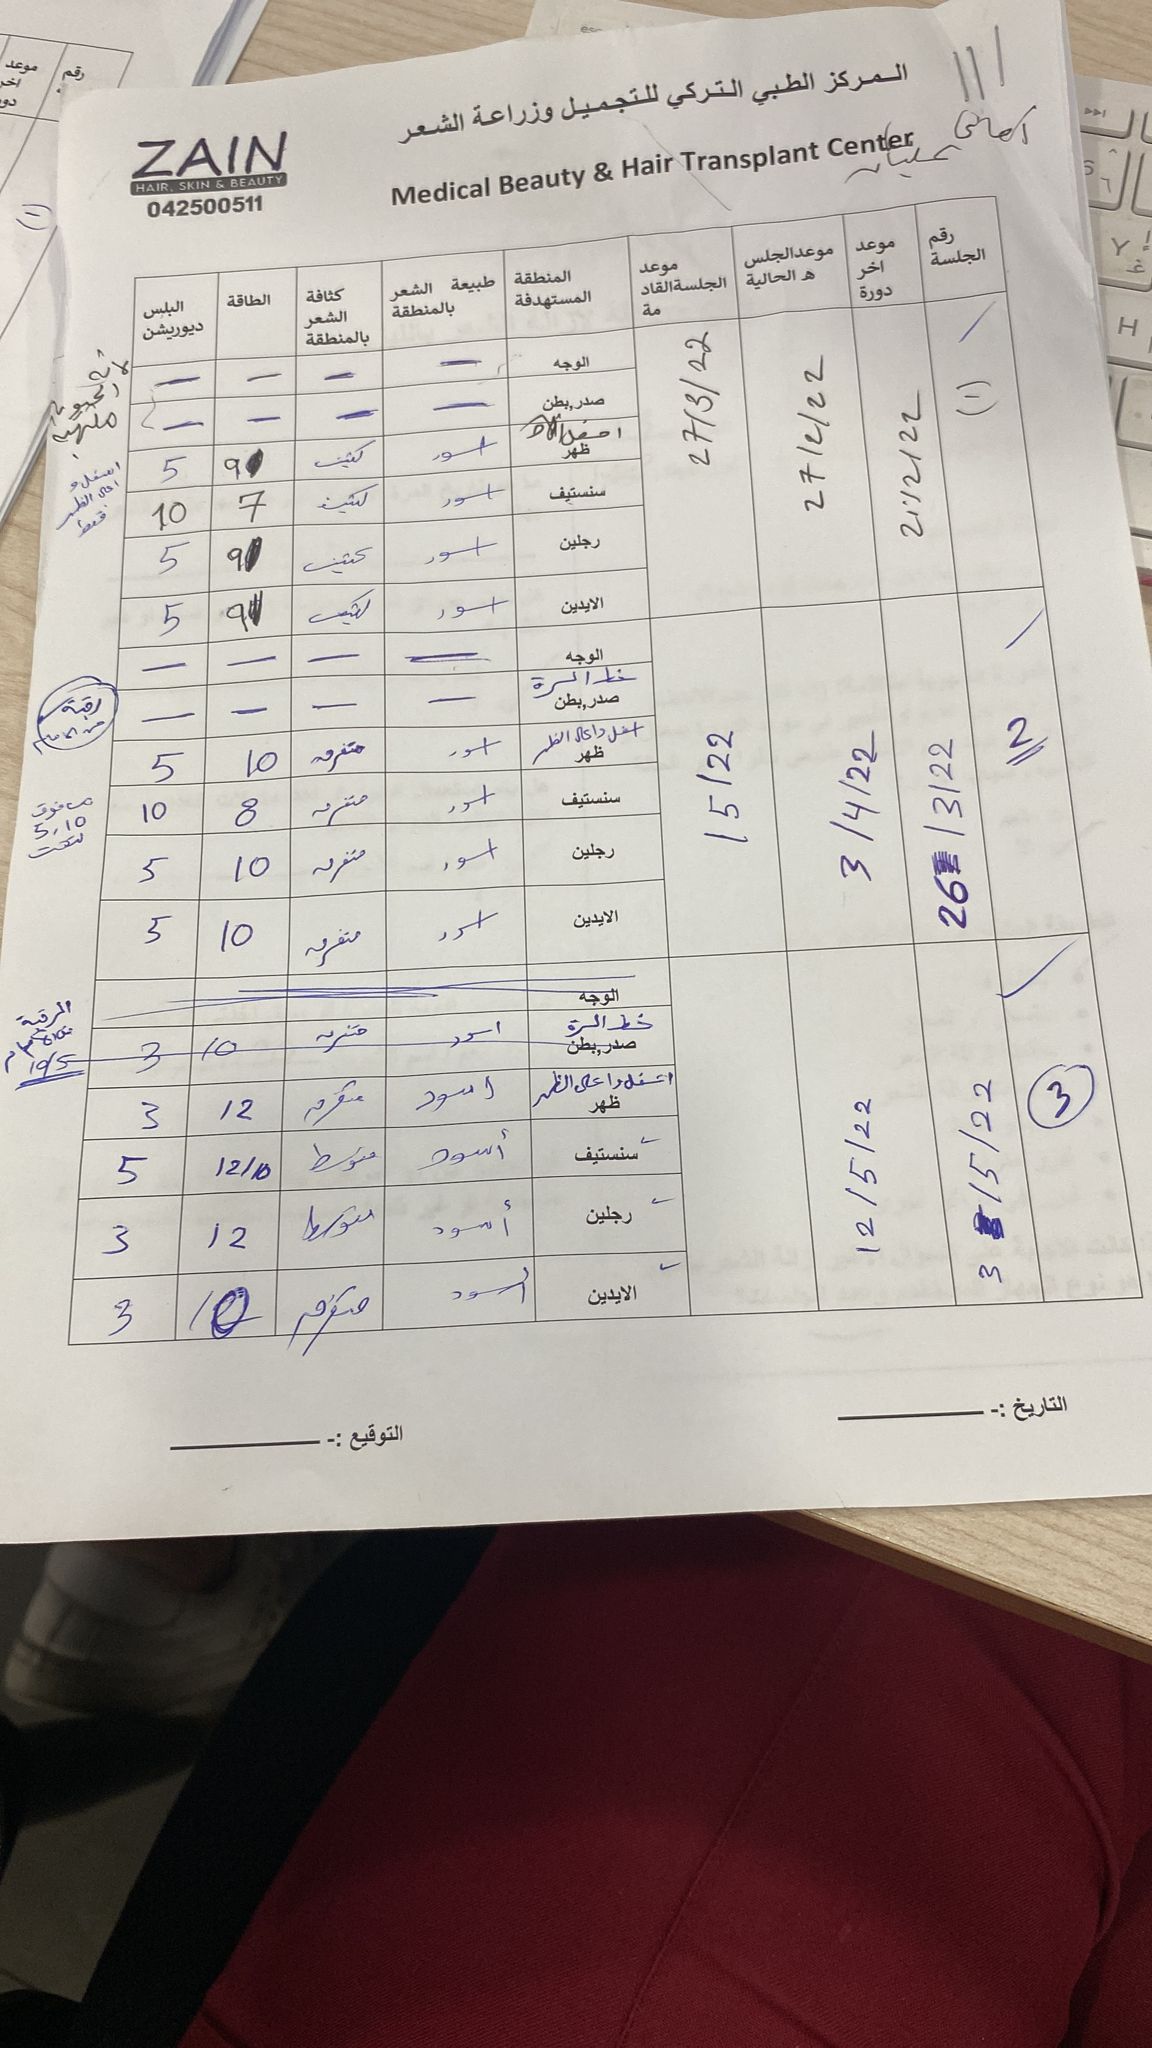 المركز الطبي التركي للتجميل وزراعة الشعر
Medical Beauty & Hair Transplant Center
ZAIN
HAIR, SKIN & BEAUTY
042500511
رقم الجلسة
موعد اخر دورة
موعدالجلس ه الحالية
موعد الجلسةالقاد مة
المنطقة المستهدفة
طبيعة الشعر بالمنطقة
كثافة الشعر بالمنطقة
الطاقة
البلس ديوريشن
(1)
27/2/22
27/3/22
الوجه — — — —
صدر,بطن — — — —
ظهر اسود كثيف 9 5
سنستيف اسود كثيف 7 10
رجلين اسود كثيف 9 5
الايدين اسود كثيف 9 5
اسفل و اعلى الظهر فقط
2
26/3/22
3/4/22
1/5/22
الوجه — — — —
خط السرة
صدر,بطن — — — —
اسفل واعلى الظهر
ظهر اسود متفرقه 10 5
سنستيف اسود متفرقه 8 10
رجلين اسود متفرقه 10 5
الايدين اسود متفرقه 10 5
رقبة
3
3/5/22
12/5/22
الوجه
خط السرة
صدر,بطن اسود متفرقه 10 3
اسفل واعلى الظهر
ظهر اسود متفرقه 12 3
سنستيف أسود متوسط 12/10 5
رجلين أسود متوسط 12 3
الايدين أسود متفرقه 10 3
الرقبة
19/5
التاريخ :-
التوقيع :-
رقم
موعد اخر دورة
(1)